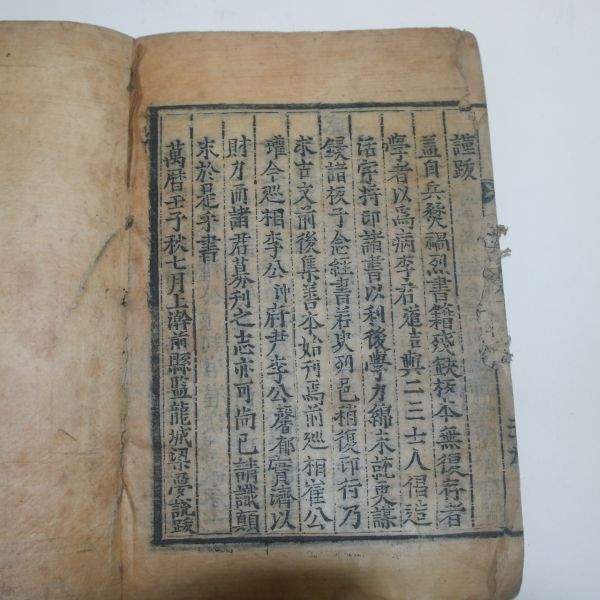 謹跋
盖自兵燹禍烈書籍殘缺板本無復存者
學者以爲病李君道吉與二三士人倡造
活字將印諸書以利後學力綿未就更謀
鋟諸板予念經書若史列邑稍復印行乃
求古文前後集善本始刊焉前廵相崔公
瓘今廵相李公冲府尹李公麘郁實濟以
財力而諸君募刋之志亦可尚已請識顛
末於是乎書
萬曆壬子秋七月上澣前縣監龍城梁夢說跋